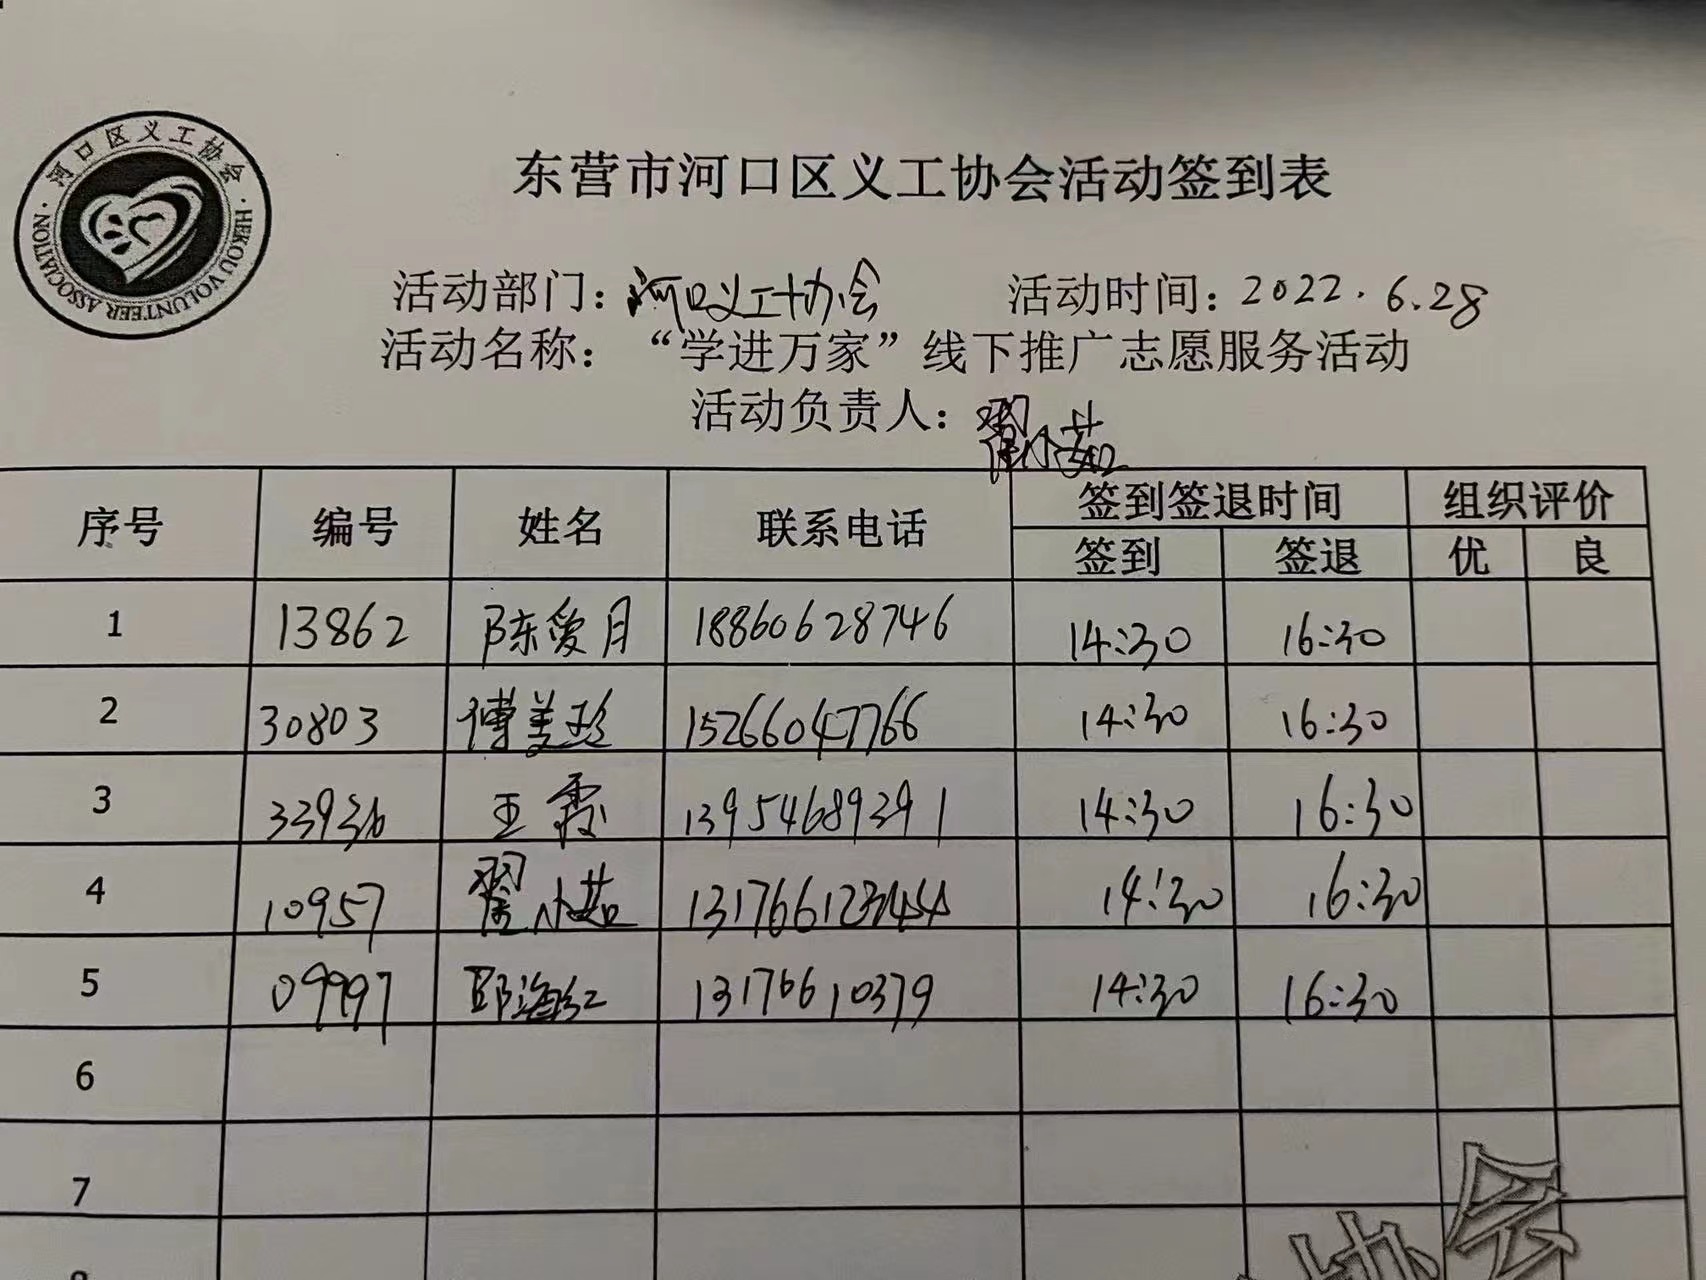 河口区义工协会
HEKOU VOLUNTEER ASSOCIATION
东营市河口区义工协会活动签到表
活动部门：河口义工协会 活动时间：2022.6.28
活动名称：“学进万家”线下推广志愿服务活动
活动负责人：翟小茹
序号 编号 姓名 联系电话 签到签退时间 组织评价
签到 签退 优 良
1 13862 陈爱月 18860628746 14:30 16:30
2 30803 傅美玲 15266047766 14:30 16:30
3 33936 王霞 13954689391 14:30 16:30
4 10957 翟小茹 14:30 16:30
5 09997 邱海红 13176610379 14:30 16:30
6
7
协会